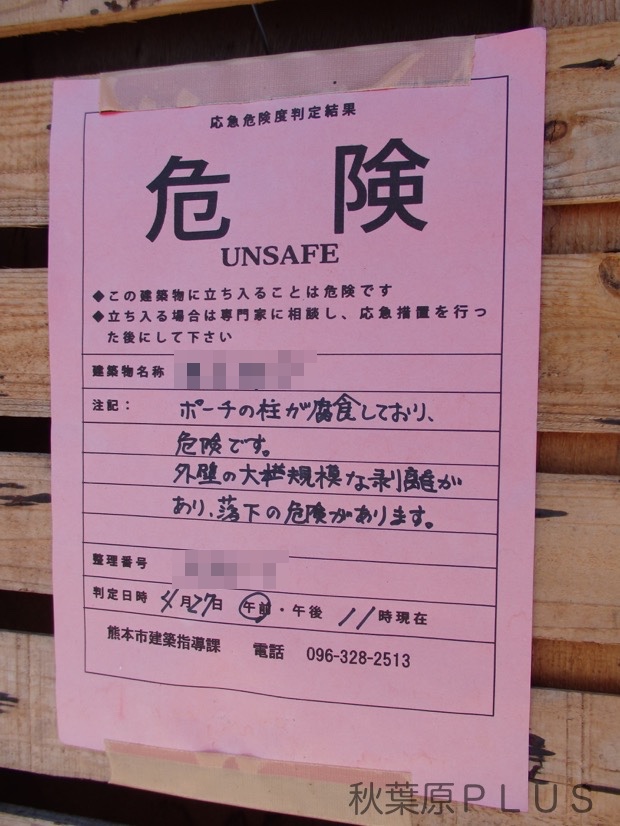 応急危険度判定結果
危 険
UNSAFE
◆この建築物に立ち入ることは危険です
◆立ち入る場合は専門家に相談し、応急措置を行っ
た後にして下さい
建築物名称
注記：　ポーチの柱が腐食しており、
危険です。
外壁の大規模な剥離が
あり、落下の危険があります。
整理番号
判定日時 4月27日 午前・午後 11時現在
熊本市建築指導課 電話 096-328-2513
秋葉原PLUS